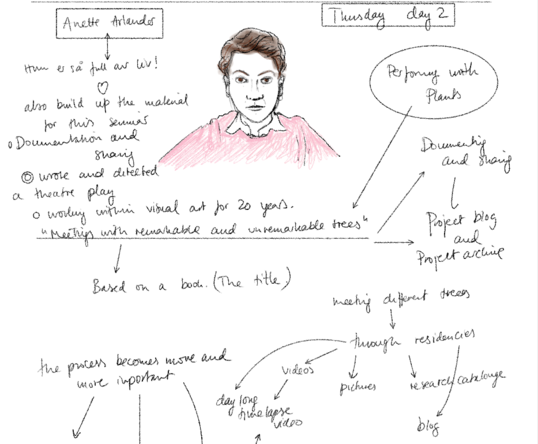 Anette Arlander
Thursday day 2
Hun er så full av liv!
also build up the material
for this seminar
Documentation and
sharing
wrote and directed
a theatre play
working within visual art for 20 years.
"Meetings with remarkable and unremarkable trees"
Based on a book. (The title)
Performing with
Plants
Documenting
and sharing
Project blog
and
Project archive
meeting different trees
through residencies
videos
pictures
research catalouge
day long
time lapse
video
blog
the process becomes more and
more important